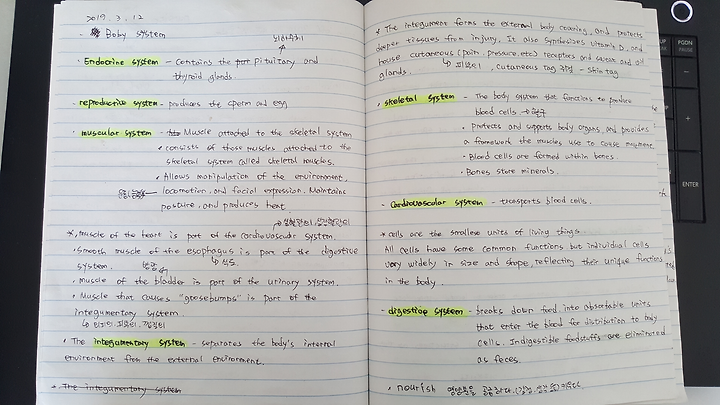 2019. 3. 12
- Body system
뇌하수체
Endocrine system - Contains the pituitary and
thyroid glands.
- reproductive system - produces the sperm and egg
- muscular system - Muscle attached to the skeletal system
• consists of those muscles attached to the
skeletal system called skeletal muscles.
• Allows manipulation of the environment,
locomotion, and facial expression. Maintains
posture, and produces heat
*, muscle of the heart is part of the cardiovascular system.
• Smooth muscle of the esophagus is part of the digestive
system. 방광 ↳ 식도
• muscle of the bladder is part of the urinary system.
• Muscle that causes "goosebumps" is part of the
integumentary system.
• The integumentary system - separates the body's internal
environment from the external environment.
• The integumentary system
* The integument forms the external body covering, and protects
deeper tissues from injury. It also synthesizes vitamin D, and
house cutaneous (pain, pressure, etc) receptors and sweat and oil
glands. ↳ 피부의, cutaneous tag - skin tag
• skeletal system - The body system that functions to produce
blood cells
• Protects and supports body organs, and provides
a framework the muscles use to cause movement.
• Blood cells are formed within bones.
• Bones store minerals.
- Cardiovascular system - transports blood cells.
* cells are the smallest units of living things.
All cells have some common functions but individual cells
vary widely in size and shape, reflecting their unique functions
in the body.
- digestive system - breaks down food into absorbable units
that enter the blood for distribution to body
cells. Indigestible foodstuffs are eliminated
as feces.
• nourish 영양분을 공급하다.
PGUP
PGDN
ENTER